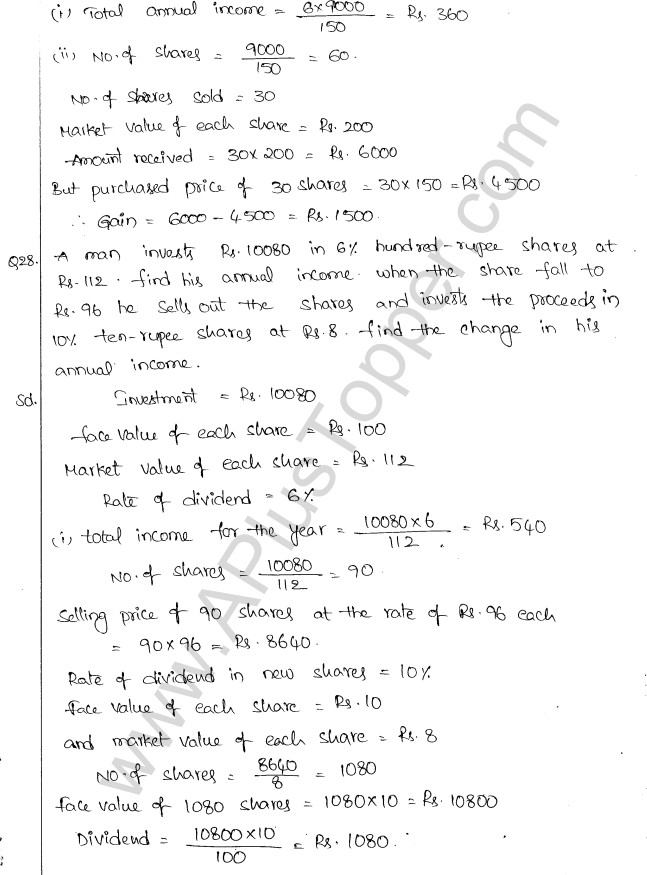 (i) Total annual income = 6×9000/150 = Rs. 360
(ii) No. of shares = 9000/150 = 60.
No. of shares sold = 30
Market value of each share = Rs. 200
Amount received = 30×200 = Rs. 6000
But purchased price of 30 shares = 30×150 = Rs. 4500
∴ Gain = 6000 - 4500 = Rs. 1500.
Q28. A man invests Rs. 10080 in 6% hundred-rupee shares at
Rs. 112. find his annual income. when the share fall to
Rs. 96 he sells out the shares and invests the proceeds in
10% ten-rupee shares at Rs. 8. find the change in his
annual income.
Sol. Investment = Rs. 10080
face value of each share = Rs. 100
Market value of each share = Rs. 112
Rate of dividend = 6%
(i) total income for the year = 10080×6/112 = Rs. 540
No. of shares = 10080/112 = 90
Selling price of 90 shares at the rate of Rs. 96 each
= 90×96 = Rs. 8640.
Rate of dividend in new shares = 10%
face value of each share = Rs. 10
and market value of each share = Rs. 8
No. of shares = 8640/8 = 1080
face value of 1080 shares = 1080×10 = Rs. 10800
Dividend = 10800×10/100 = Rs. 1080.
www.APlusTopper.com